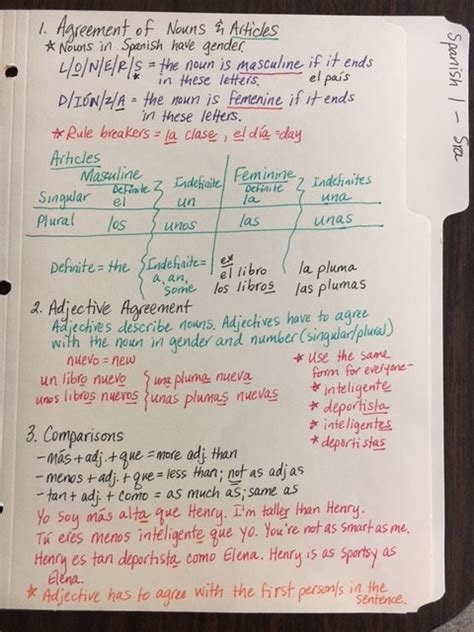 1. Agreement of Nouns & Articles
* Nouns in Spanish have gender.
L/O/N/E/R/S = the noun is masculine if it ends
in these letters. el país
D/IÓN/Z/A = the noun is femenine if it ends
in these letters.
* Rule breakers = la clase, el día = day
Articles
Masculine Feminine
Definite Indefinite Definite Indefinites
Singular el un la una
Plural los unos las unas
Definite = the Indefinite = a, an, some
ex
el libro la pluma
los libros las plumas
2. Adjective Agreement
Adjectives describe nouns. Adjectives have to agree
with the noun in gender and number (singular/plural)
nuevo = new
un libro nuevo una pluma nueva
unos libros nuevos unas plumas nuevas
* Use the same
form for everyone-
* inteligente
* deportista
* inteligentes
* deportistas
3. Comparisons
- más + adj. + que = more adj. than
- menos + adj. + que = less than; not as adj as
- tan + adj. + como = as much as; same as
Yo soy más alta que Henry. I'm taller than Henry.
Tú eres menos inteligente que yo. You're not as smart as me.
Henry es tan deportista como Elena. Henry is as sportsy as
Elena.
* Adjective has to agree with the first person/s in the
sentence.
Spanish 1 - Sra